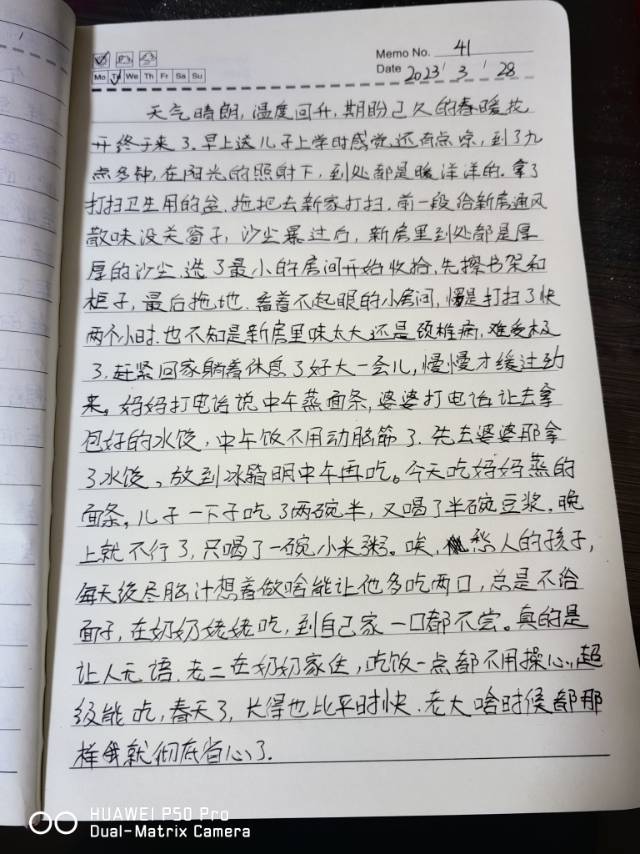 Memo No. 41
Mo Tu We Th Fr Sa Su
Date 2023 / 3 / 28
天气晴朗,温度回升,期盼已久的春暖花
开终于来了.早上送儿子上学时感觉还有点凉,到了九
点多钟,在阳光的照射下,到处都是暖洋洋的.拿了
打扫卫生用的盆,拖把去新家打扫.前一段给新房通风
散味没关窗子,沙尘暴过后,新房里到处都是厚
厚的沙尘.选了最小的房间开始收拾,先擦书架和
柜子,最后拖地.看着不起眼的小房间,愣是打扫了快
两个小时.也不知是新房里味太大还是颈椎病,难受极
了.赶紧回家躺着休息了好大一会儿,慢慢才缓过劲
来。妈妈打电话说中午蒸面条,婆婆打电话让去拿
包好的水饺,中午饭不用动脑筋了.先去婆婆那拿
了水饺,放到冰箱明中午再吃。今天吃妈妈蒸的
面条,儿子一下子吃了两碗半,又喝了半碗豆浆。晚
上就不行了,只喝了一碗小米粥。唉,愁人的孩子,
每天绞尽脑汁想着做啥能让他多吃两口,总是不给
面子,在奶奶姥姥吃,到自己家一口都不尝。真的是
让人无语.老二在奶奶家住,吃饭一点都不用操心,超
级能吃,春天了,长得也比平时快.老大啥时候都那
样我就彻底省心了.
HUAWEI P50 Pro
Dual-Matrix Camera